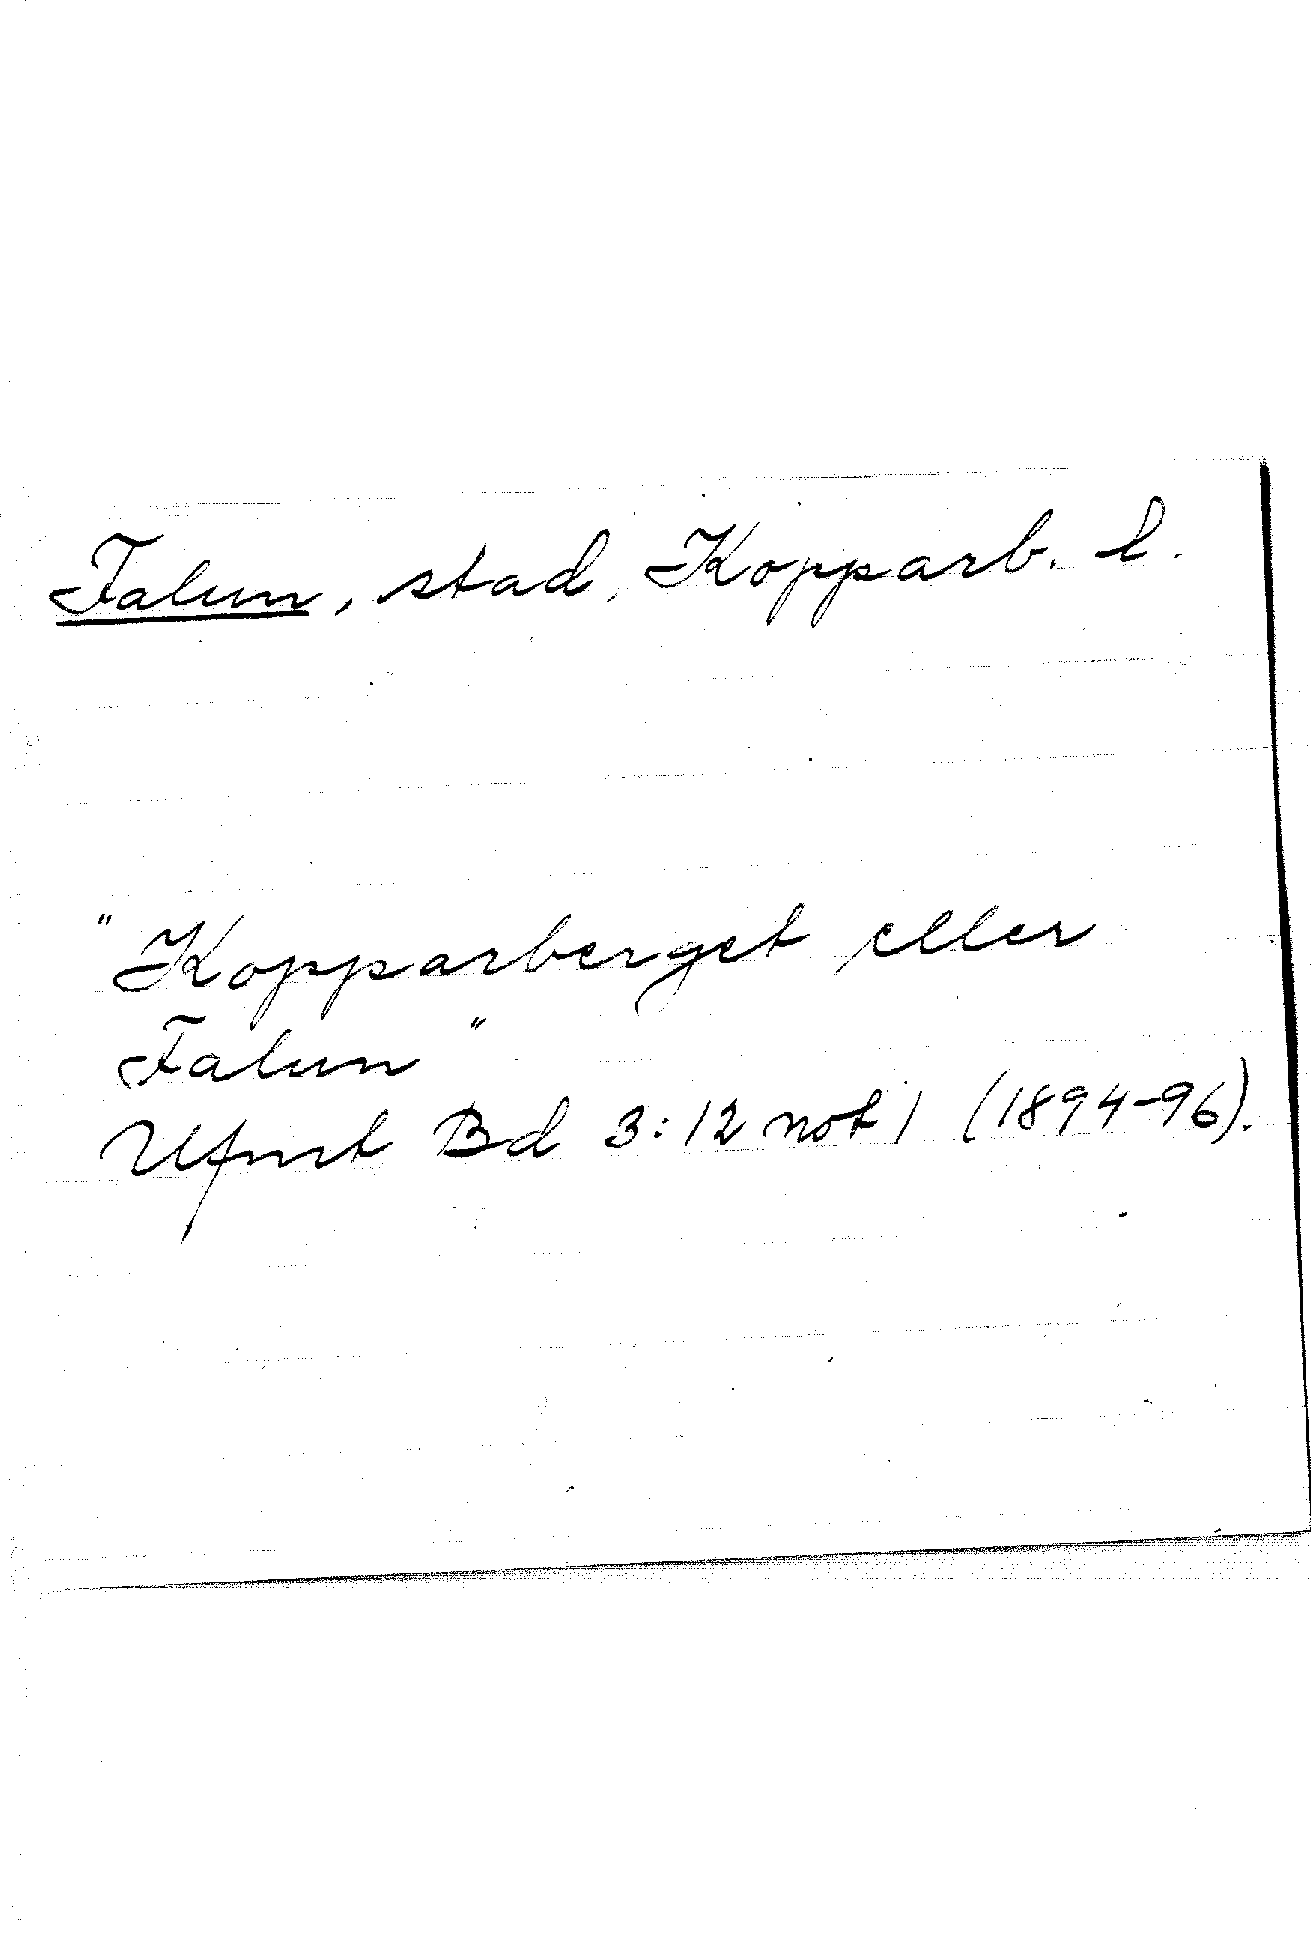 Falun, stad, Kopparb. l.
"Kopparberget eller
Falun"
Ufmt Bd 3:12 not 1 (1894-96).